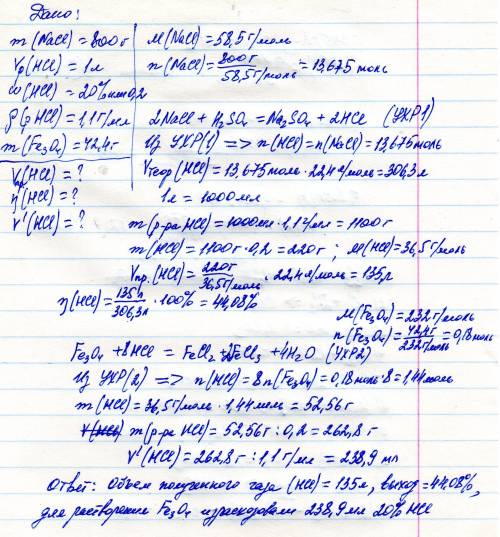 Дано:
m(NaCl) = 800 г
Vр(HCl) = 1 л
ω(HCl) = 20% или 0,2
ρ(рHCl) = 1,1 г/мл
m(Fe3O4) = 42,4 г
Vпр(HCl) = ?
η(HCl) = ?
V'(HCl) = ?
M(NaCl) = 58,5 г/моль
n(NaCl) = 800 г / 58,5 г/моль = 13,675 моль
2NaCl + H2SO4 = Na2SO4 + 2HCl (УХР1)
Из УХР(1) => n(HCl) = n(NaCl) = 13,675 моль
Vтеор(HCl) = 13,675 моль · 22,4 л/моль = 306,3 л
1 л = 1000 мл
m(р-ра HCl) = 1000 мл · 1,1 г/мл = 1100 г
m(HCl) = 1100 г · 0,2 = 220 г ; M(HCl) = 36,5 г/моль
Vпр.(HCl) = 220 г / 36,5 г/моль · 22,4 л/моль = 135 л
η(HCl) = 135 л / 306,3 л · 100% = 44,08%
M(Fe3O4) = 232 г/моль
n(Fe3O4) = 42,4 г / 232 г/моль = 0,18 моль
Fe3O4 + 8HCl = FeCl2 + 2FeCl3 + 4H2O (УХР2)
Из УХР(2) => n(HCl) = 8n(Fe3O4) = 0,18 моль · 8 = 1,44 моль
m(HCl) = 36,5 г/моль · 1,44 моль = 52,56 г
m(р-ра HCl) = 52,56 г : 0,2 = 262,8 г
V'(HCl) = 262,8 г : 1,1 г/мл = 238,9 мл
Ответ: Объем полученного газа (HCl) = 135 л, выход = 44,08%,
для растворения Fe3O4 израсходовали 238,9 мл 20% HCl